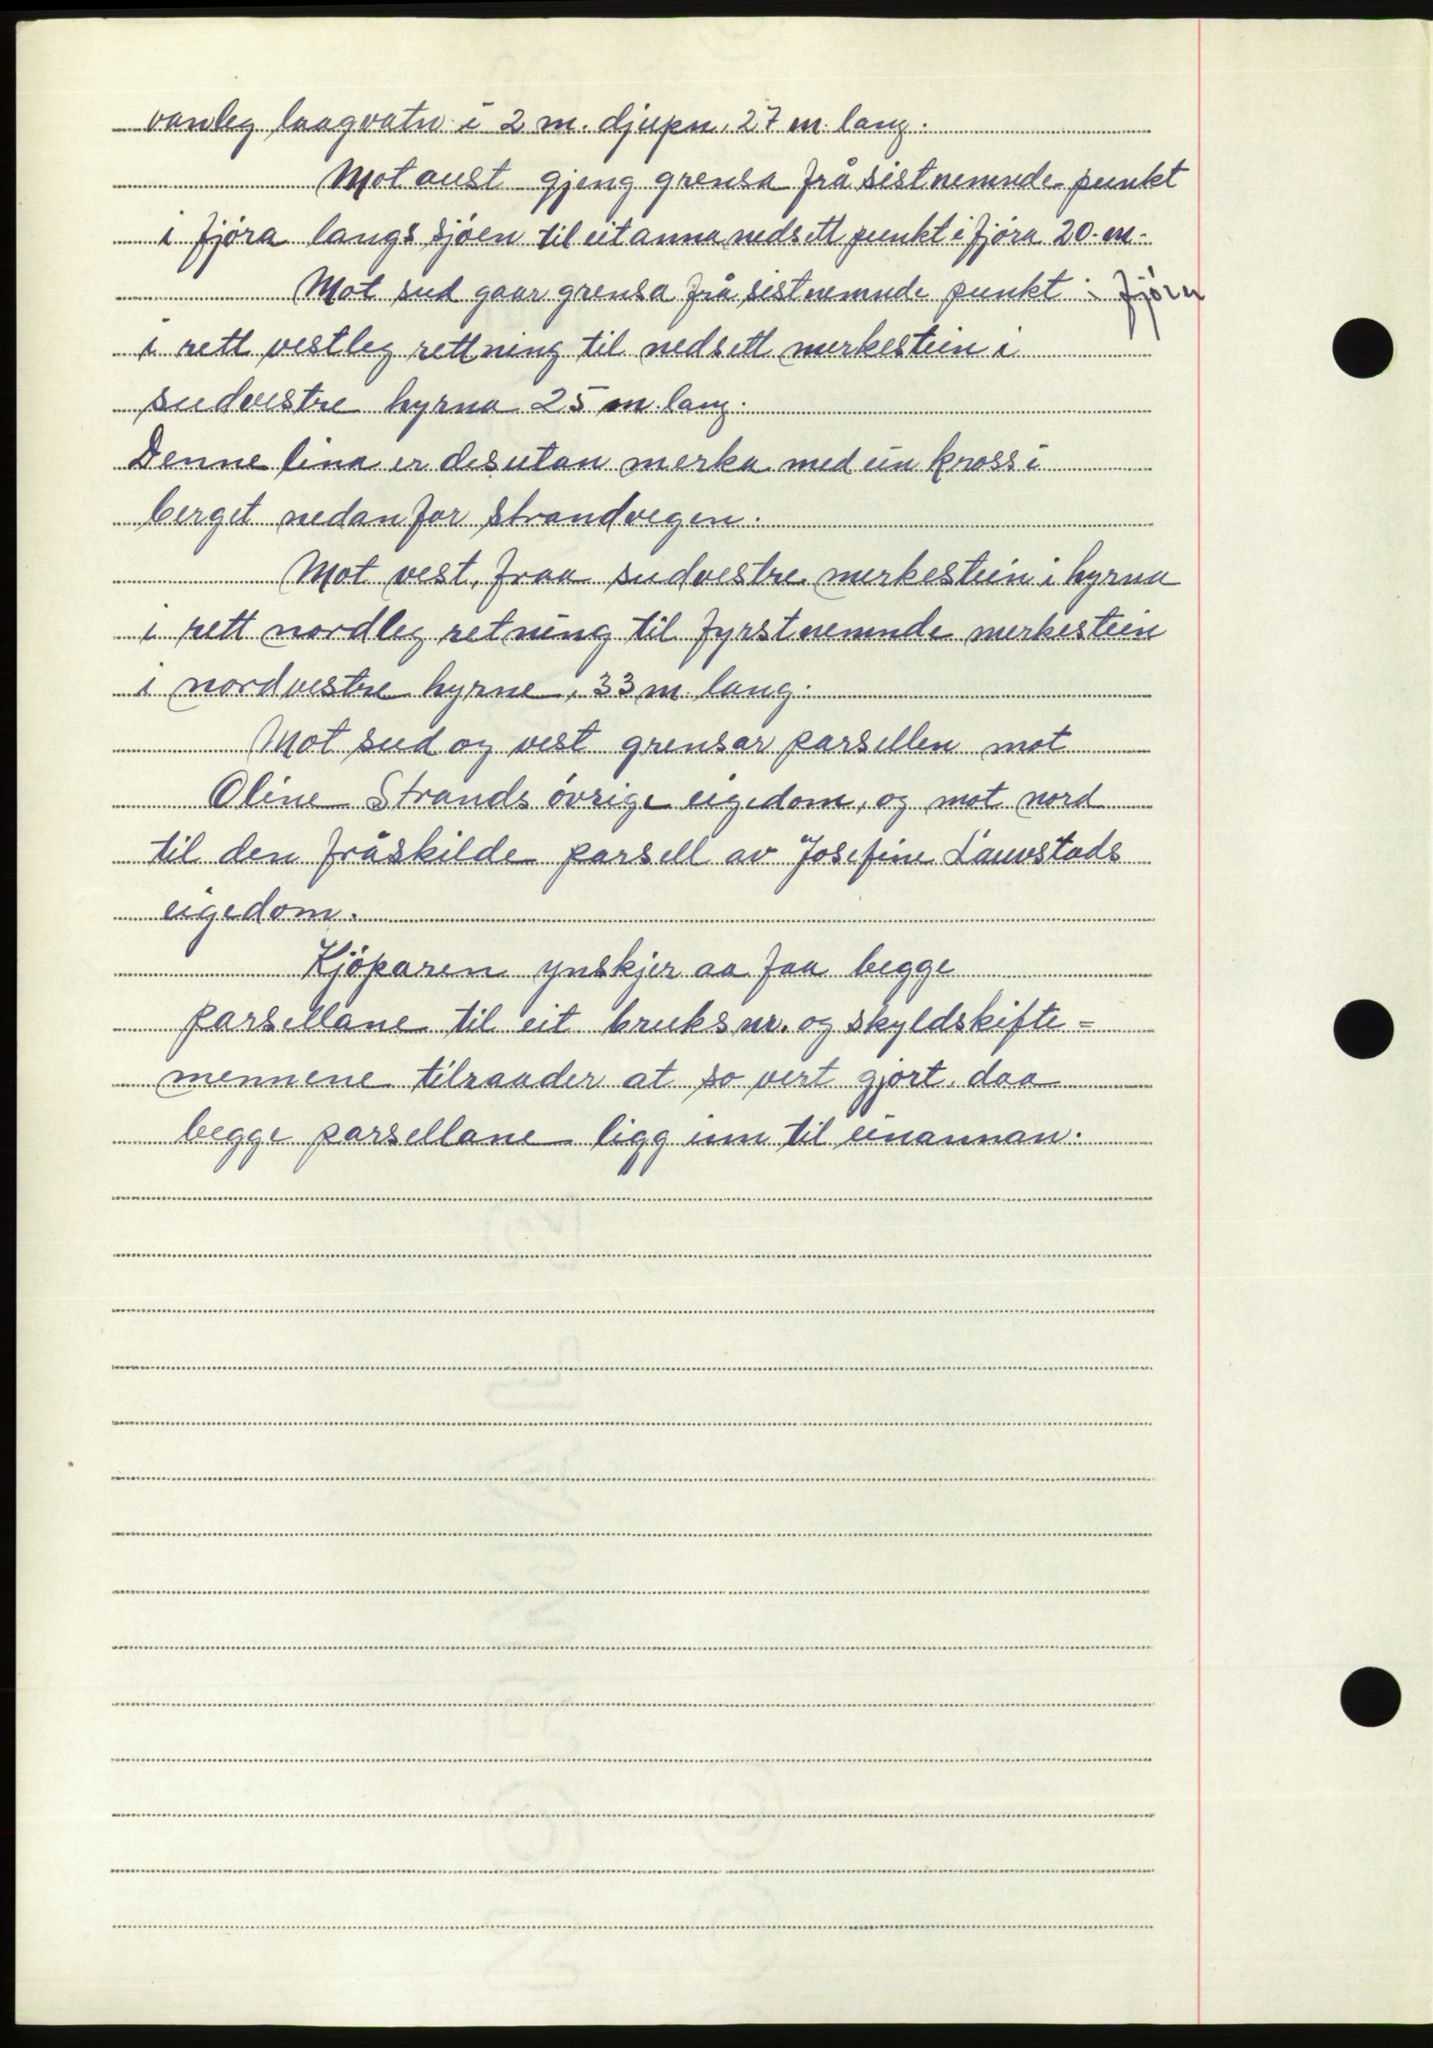 vanleg laagvatn i 2 m. djupn, 27 m. lang.
Mot aust gjeng grensa frå sistnemnde punkt
i fjøra langs sjøen til eit anna nedsett punkt i fjøra 20. m.
Mot sud gaar grensa frå sistnemnde punkt i fjøra
i rett vestleg rettning til nedsett merkestein i
sudvestre hyrna 25 m. lang.
Denne lina er desutan merka med ein kross i
berget nedanfor Strandvegen.
Mot vest, fraa sudvestre merkestein i hyrna
i rett nordleg retning til fyrstnemnde merkestein
i nordvestre hyrne, 33 m. lang.
Mot sud og vest grensar parsellen mot
Oline Strands øvrige eigedom, og mot nord
til den fråskilde parsell av Josefine Lauvstads
eigedom.
Kjöparen ynskjer aa faa begge
parsellane til eit bruksnr. og skyldskifte=
mennene tilraader at so vert gjort, daa
begge parsellane ligg inn til einannan.